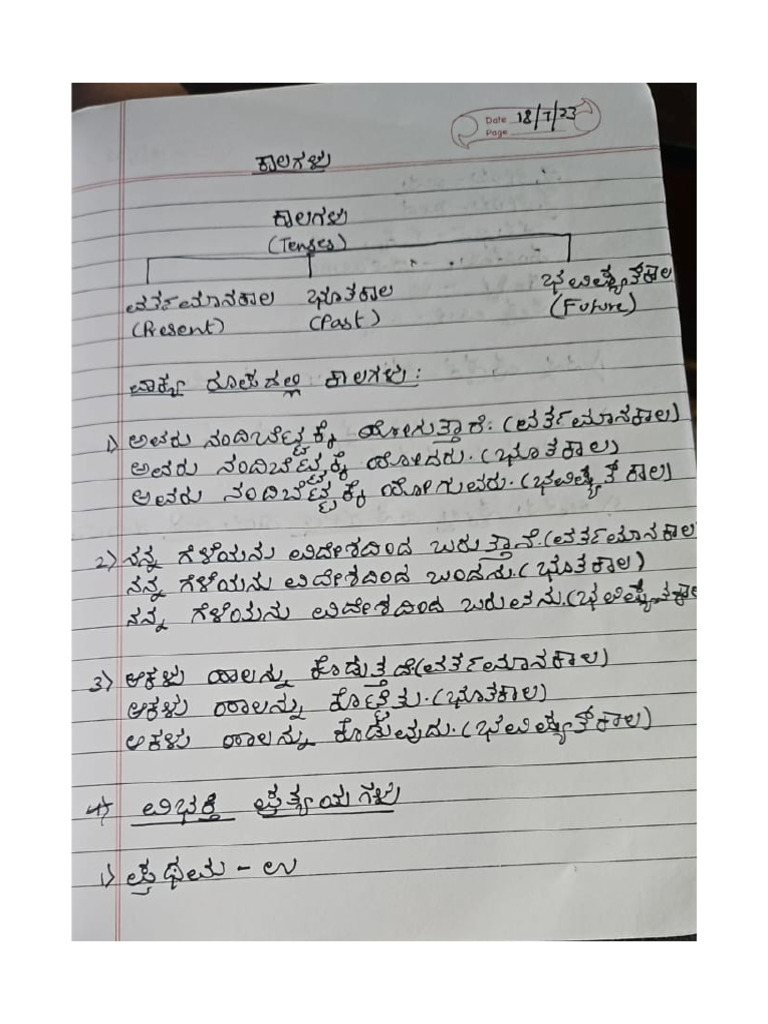 Date 18/7/23
Page
ಕಾಲಗಳು
ಕಾಲಗಳು
(Tenses)
ವರ್ತಮಾನಕಾಲ ಭೂತಕಾಲ ಭವಿಷ್ಯತ್ಕಾಲ
(Present) (Past) (Future)
ವಾಕ್ಯ ರೂಪದಲ್ಲಿ ಕಾಲಗಳು:
1) ಅವರು ನಂದಿಬೆಟ್ಟಕ್ಕೆ ಹೋಗುತ್ತಾರೆ. (ವರ್ತಮಾನಕಾಲ)
ಅವರು ನಂದಿಬೆಟ್ಟಕ್ಕೆ ಹೋದರು. (ಭೂತಕಾಲ)
ಅವರು ನಂದಿಬೆಟ್ಟಕ್ಕೆ ಹೋಗುವರು. (ಭವಿಷ್ಯತ್ ಕಾಲ)
2) ನನ್ನ ಗೆಳೆಯನು ವಿದೇಶದಿಂದ ಬರುತ್ತಾನೆ. (ವರ್ತಮಾನಕಾಲ
ನನ್ನ ಗೆಳೆಯನು ವಿದೇಶದಿಂದ ಬಂದನು. (ಭೂತಕಾಲ)
ನನ್ನ ಗೆಳೆಯನು ವಿದೇಶದಿಂದ ಬರುವನು. (ಭವಿಷ್ಯತ್ಕಾಲ
3) ಆಕಳು ಹಾಲನ್ನು ಕೊಡುತ್ತದೆ (ವರ್ತಮಾನಕಾಲ)
ಆಕಳು ಹಾಲನ್ನು ಕೊಟ್ಟಿತ್ತು. (ಭೂತಕಾಲ)
ಆಕಳು ಹಾಲನ್ನು ಕೊಡುವುದು. (ಭವಿಷ್ಯತ್ಕಾಲ)
4) ವಿಭಕ್ತಿ ಪ್ರತ್ಯಯಗಳು
1) ಪ್ರಥಮ - ಉ